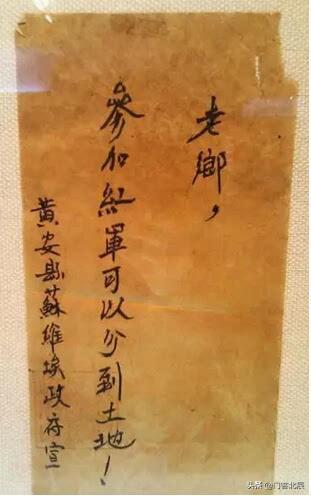 老鄉，
參加紅軍可以分到土地！
黃安縣蘇維埃政府宣
头条 @门客北辰